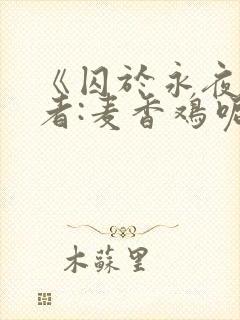 《囚於永夜
者:麦香鸡呢
木蘇里